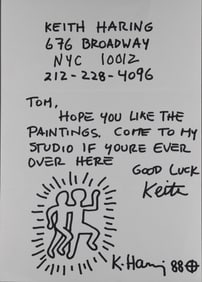 KEITH HARING
676 BROADWAY
NYC 10012
212-228-4096
TOM,
HOPE YOU LIKE THE
PAINTINGS. COME TO MY
STUDIO IF YOURE EVER
OVER HERE
GOOD LUCK
Keith
K. Haring 88